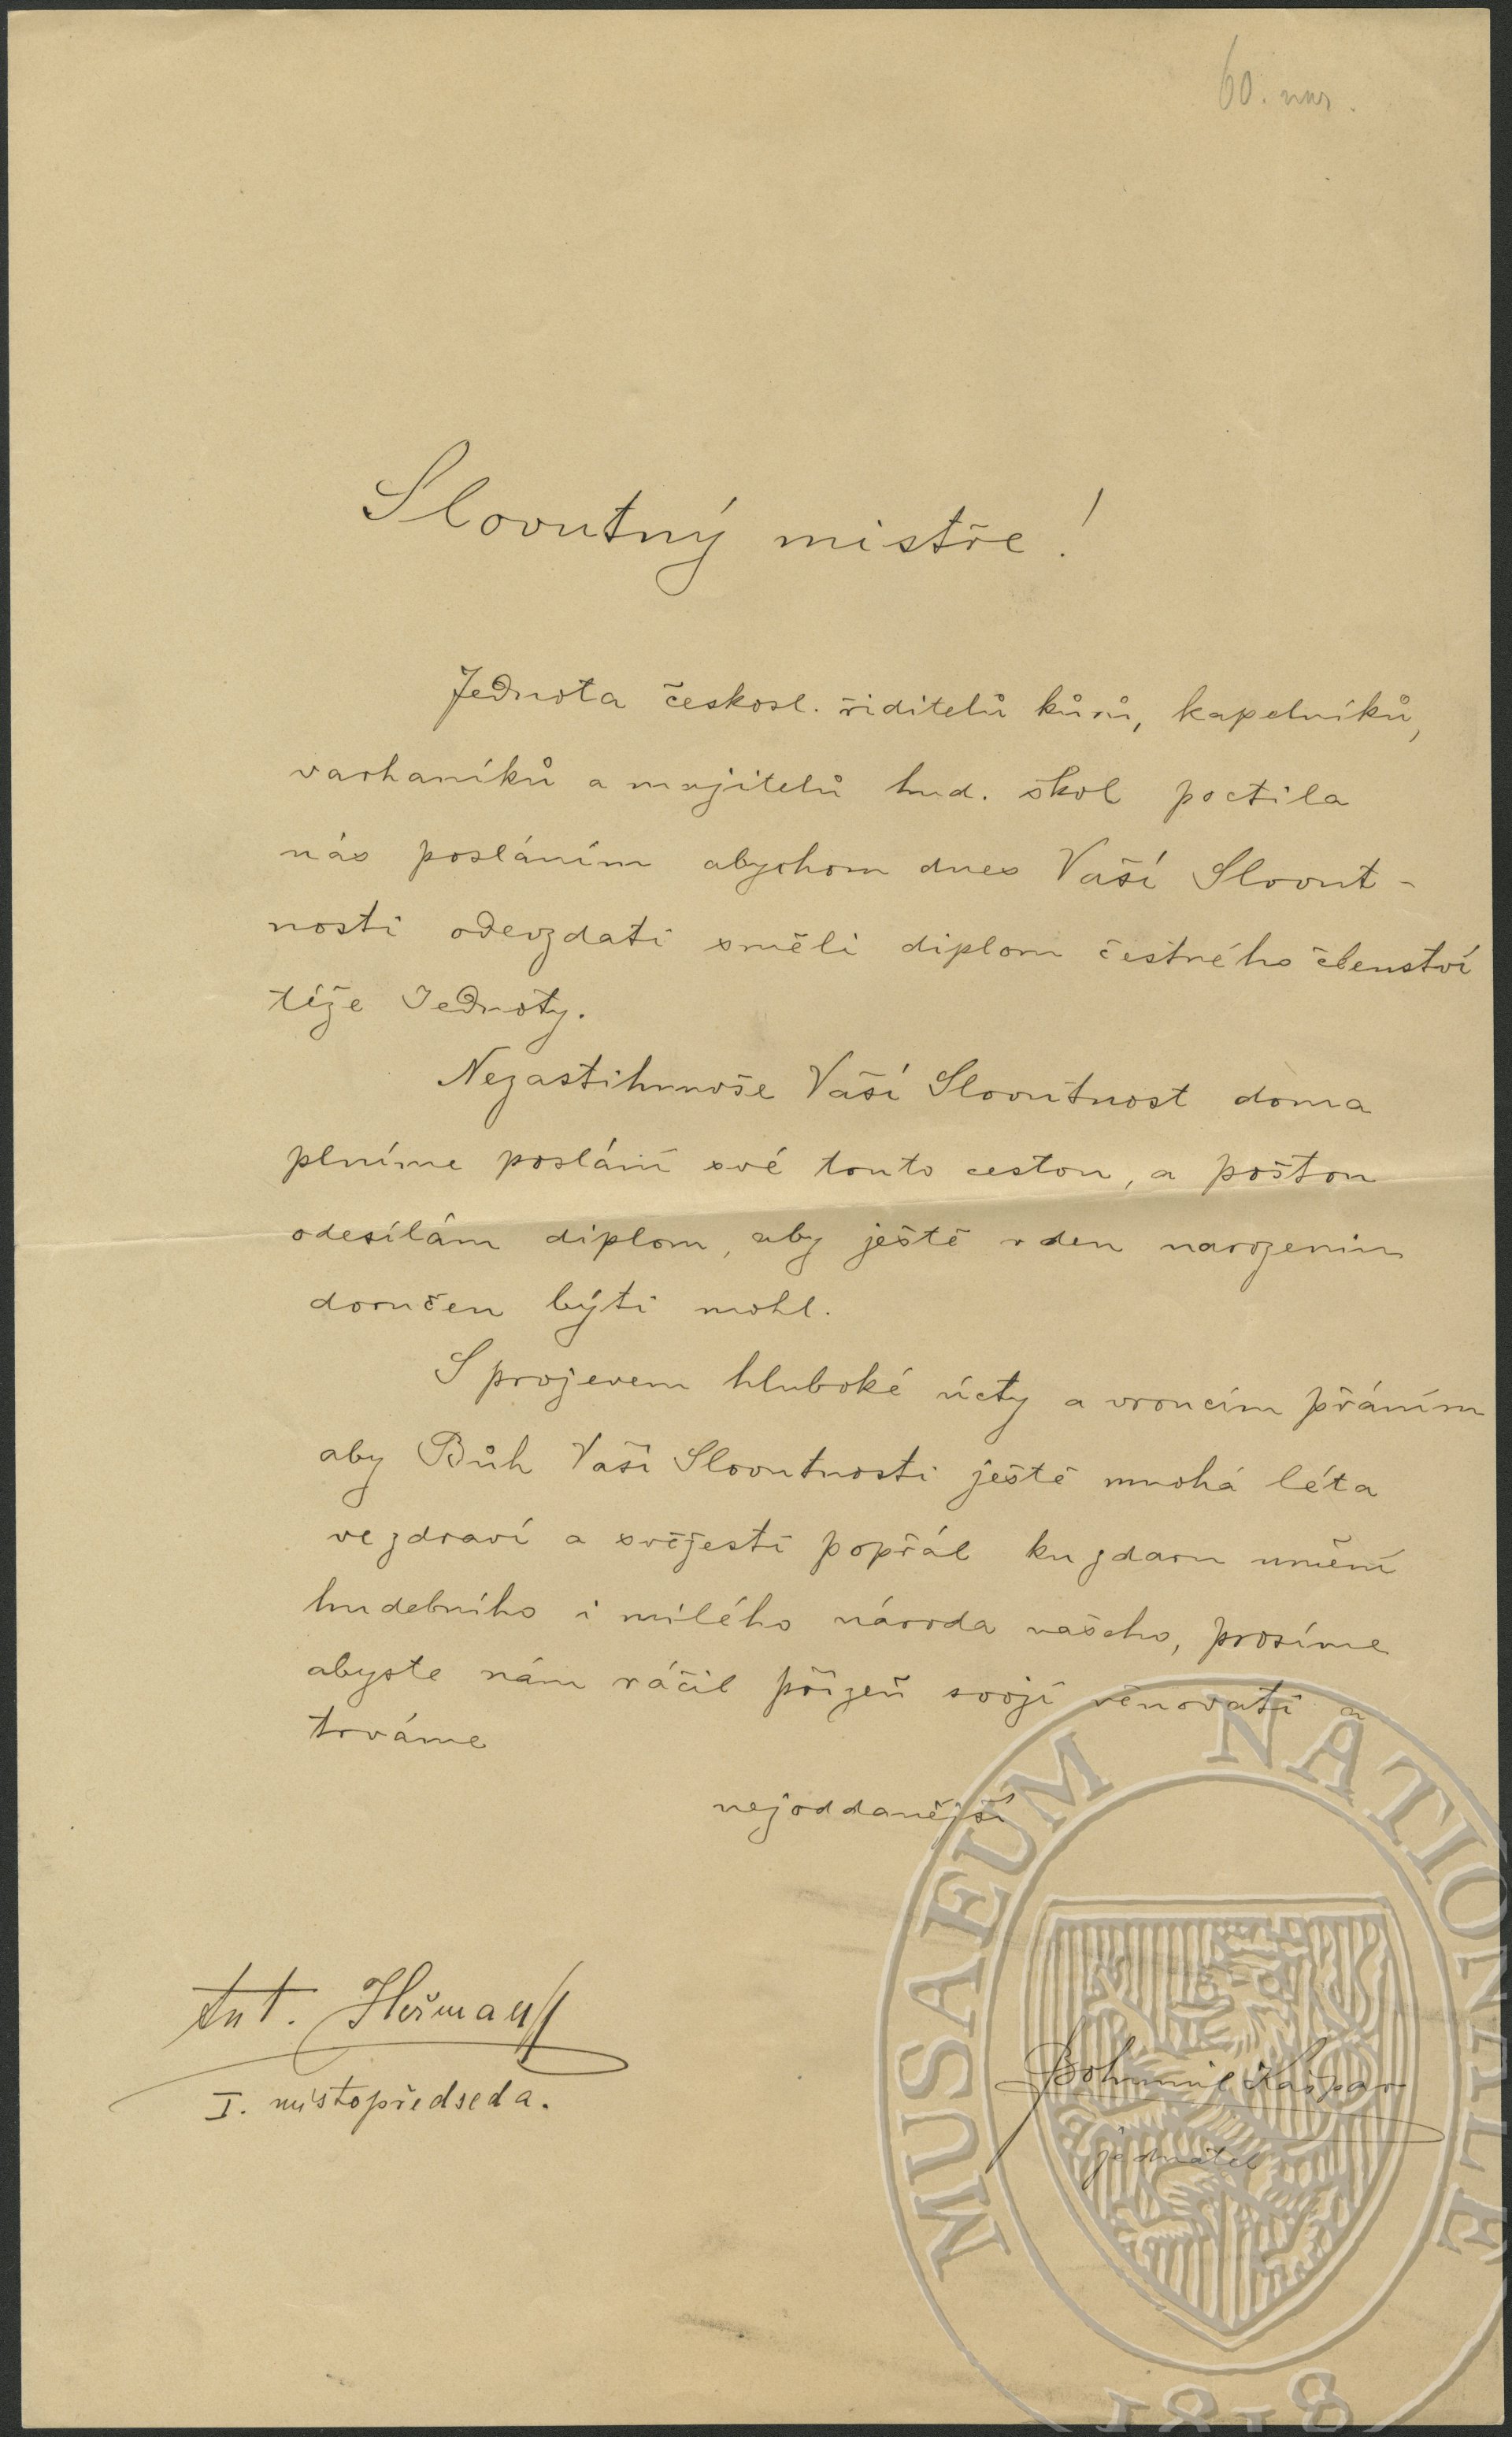 60. nar.
Slovutný mistře!
Jednota českosl. řiditelů kůrů, kapelníků,
varhaníků a majitelů hud. škol poctila
nás posláním abychom dnes Vaší Slovut-
nosti odevzdati směli diplom čestného členství
téže Jednoty.
Nezastihnuvše Vaší Slovutnost doma
plníme poslání své touto cestou, a poštou
odesílám diplom, aby ještě v den narozenin
doručen býti mohl.
S projevem hluboké úcty a vroucím přáním
aby Bůh Vaší Slovutnosti ještě mnohá léta
ve zdraví a svěžesti popřál ku zdaru umění
hudebního i milého národa našeho, prosíme
abyste nám ráčil přízeň svoji věnovati a
trváme
nejoddanější
Ant. Heřman
I. místopředseda.
Bohumil Kašpar
jednatel
MUSAEUM NATIONALE
1818